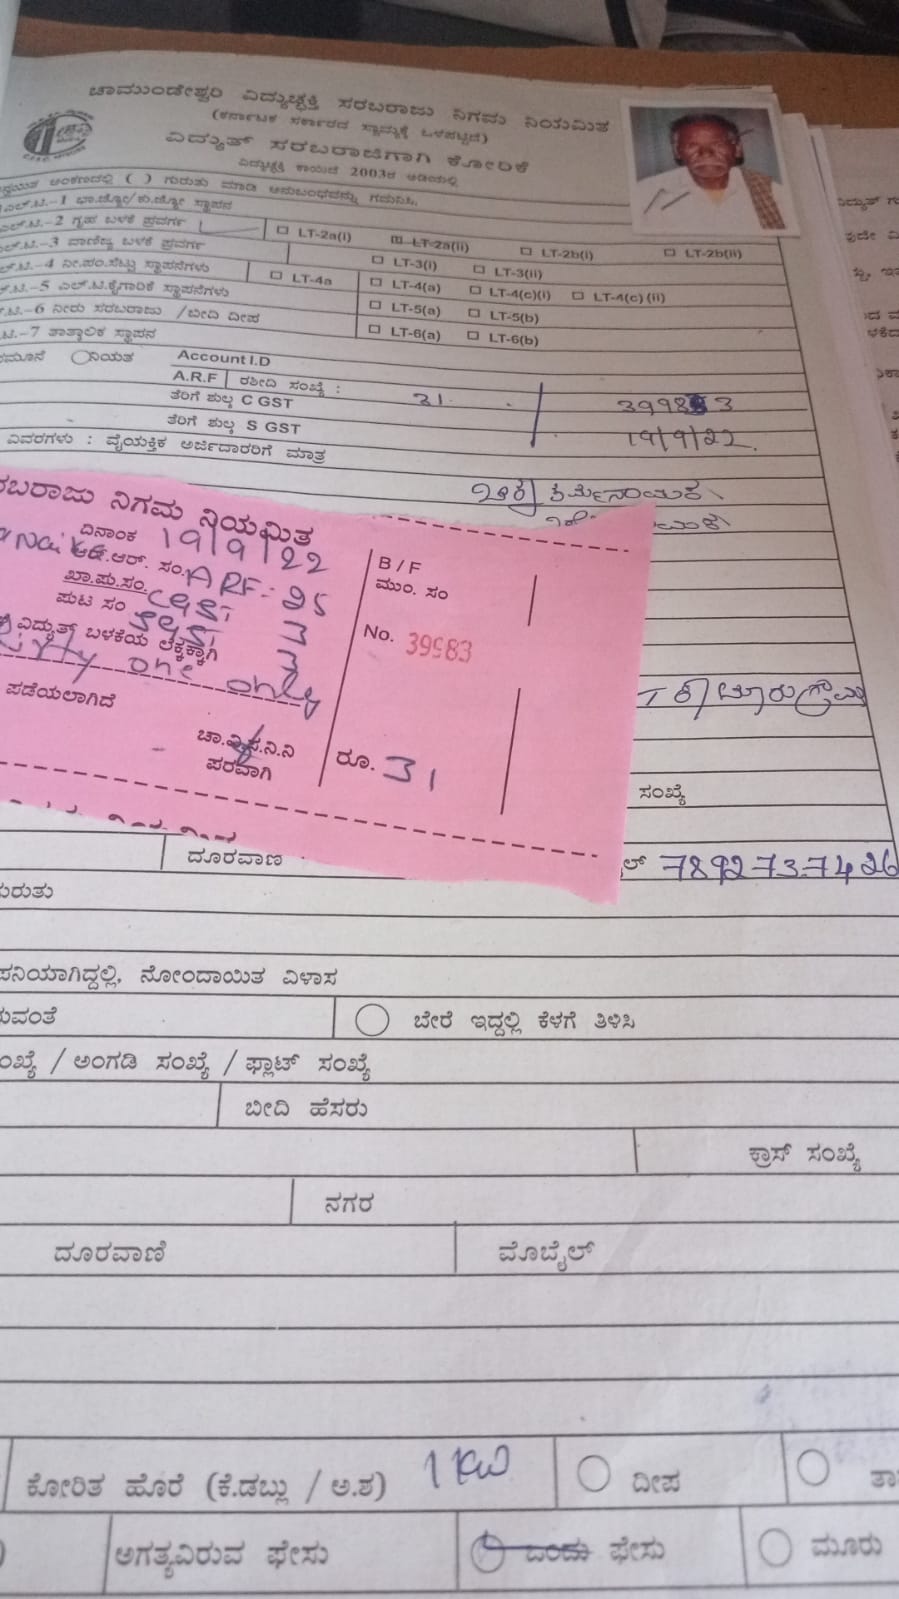 ಚಾಮುಂಡೇಶ್ವರಿ ವಿದ್ಯುಚ್ಛಕ್ತಿ ಸರಬರಾಜು ನಿಗಮ ನಿಯಮಿತ
(ಕರ್ನಾಟಕ ಸರ್ಕಾರದ ಸ್ವಾಮ್ಯಕ್ಕೆ ಒಳಪಟ್ಟಿದೆ)
ವಿದ್ಯುತ್ ಸರಬರಾಜಿಗಾಗಿ ಕೋರಿಕೆ
ವಿದ್ಯುಚ್ಛಕ್ತಿ ಕಾಯಿದೆ 2003ರ ಅಡಿಯಲ್ಲಿ
ಅಂಕಣದಲ್ಲಿ ( ) ಗುರುತು ಮಾಡಿ ಅನುಬಂಧವನ್ನು ಗಮನಿಸಿ.
ಎಲ್.ಟಿ.-1 ಭಾ.ಜ್ಯೋ/ಕು.ಜ್ಯೋ ಸ್ಥಾಪನ
ಎಲ್.ಟಿ.-2 ಗೃಹ ಬಳಕೆ ಪ್ರವರ್ಗ LT-2a(i) LT-2a(ii) LT-2b(i) LT-2b(ii)
ಎಲ್.ಟಿ.-3 ವಾಣಿಜ್ಯ ಬಳಕೆ ಪ್ರವರ್ಗ LT-3(i) LT-3(ii)
ಲ್.ಟಿ.-4 ನೀ.ಪಂ.ಸೆಟ್ಟು ಸ್ಥಾಪನೆಗಳು LT-4a LT-4(a) LT-4(c)(i) LT-4(c) (ii)
.ಟಿ.-5 ಎಲ್.ಟಿ.ಕೈಗಾರಿಕೆ ಸ್ಥಾಪನೆಗಳು LT-5(a) LT-5(b)
.ಟಿ.-6 ನೀರು ಸರಬರಾಜು /ಬೀದಿ ದೀಪ LT-6(a) LT-6(b)
ಟಿ.-7 ತಾತ್ಕಾಲಿಕ ಸ್ಥಾಪನ
ನಿಯತ Account I.D
A.R.F ರಶೀದಿ ಸಂಖ್ಯೆ : 31.
ತೆರಿಗೆ ಶುಲ್ಕ C GST
ತೆರಿಗೆ ಶುಲ್ಕ S GST 19/9/22
ವಿವರಗಳು : ವೈಯಕ್ತಿಕ ಅರ್ಜಿದಾರರಿಗೆ ಮಾತ್ರ
ರಬರಾಜು ನಿಗಮ ನಿಯಮಿತ
ದಿನಾಂಕ 19/9/22
ಆರ್.ಆರ್. ಸಂ. ARF:- 25
ಖಾ.ಪು.ಸಂ. CGST 3
ಪುಟ ಸಂ SGST 3
ವಿದ್ಯುತ್ ಬಳಕೆಯ ಲೆಕ್ಕಕ್ಕಾಗಿ
one only
ಪಡೆಯಲಾಗಿದೆ
ಚಾ.ವಿ.ಸ.ನಿ.ನಿ
ಪರವಾಗಿ
B / F
ಮುಂ. ಸಂ
No. 39983
ರೂ. 31
ಸಂಖ್ಯೆ
ದೂರವಾಣಿ 7892737426
ಗುರುತು
ಪನಿಯಾಗಿದ್ದಲ್ಲಿ, ನೋಂದಾಯಿತ ವಿಳಾಸ
ರುವಂತೆ ಬೇರೆ ಇದ್ದಲ್ಲಿ ಕೆಳಗೆ ತಿಳಿಸಿ
ಂಖ್ಯೆ / ಅಂಗಡಿ ಸಂಖ್ಯೆ / ಫ್ಲಾಟ್ ಸಂಖ್ಯೆ
ಬೀದಿ ಹೆಸರು
ಕ್ರಾಸ್ ಸಂಖ್ಯೆ
ನಗರ
ದೂರವಾಣಿ ಮೊಬೈಲ್
ಕೋರಿತ ಹೊರೆ (ಕೆ.ಡಬ್ಲು / ಅ.ಶ) 1 KW ದೀಪ
ಅಗತ್ಯವಿರುವ ಫೇಸು ಒಂದು ಫೇಸು ಮೂರು